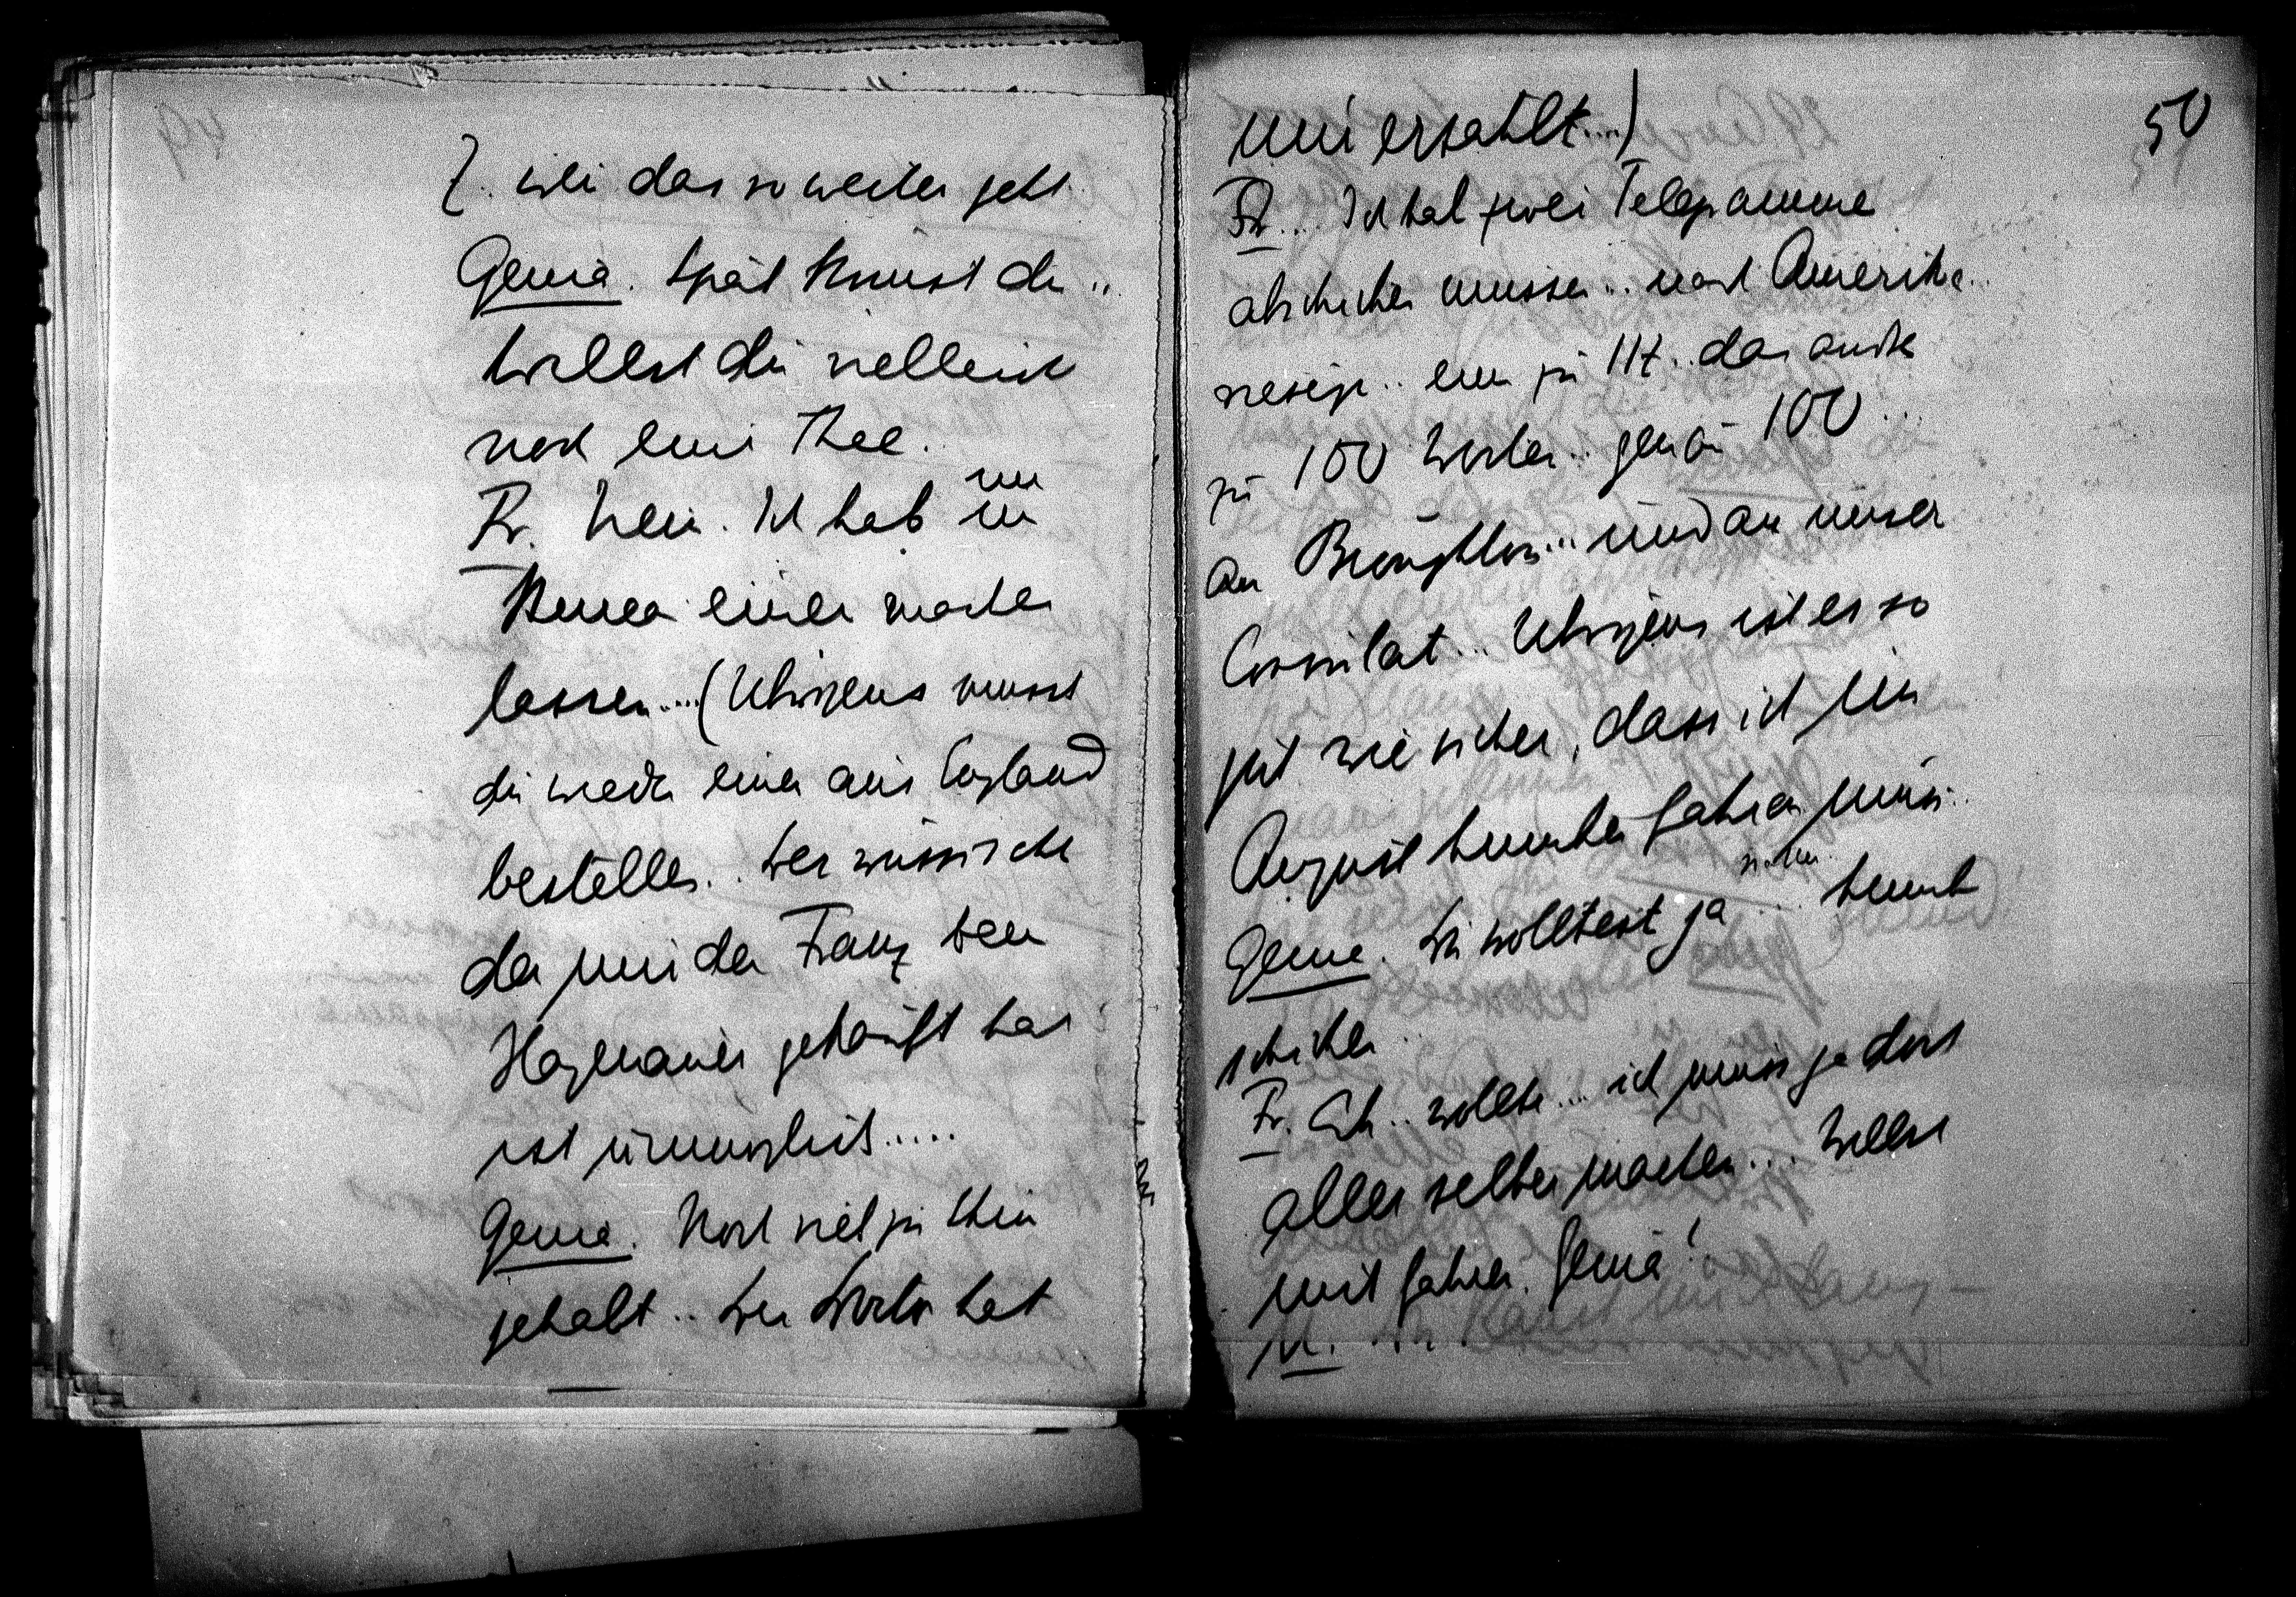 wie das so weiter geht
Genia. Spät kommst du ..
Willst du vielleicht
noch einen Thee.
Fr. Nein. Ich hab mir im
einen machen
lassen .... (Übrigens musst
du wieder einen aus England
bestellen .. Der russische
den mir der Franz beim
gekauft hat
ist unmöglich .....
Genia. Noch viel zu thun
gehabt .. Der hat
mir erzählt ....)
Fr... Ich hab zwei Telegramme
abschicken müssen .. nach Amerika ..
riesige .. eins zu 117 .. das andre
zu 100 Worten .. genau 100 ...
An ... und an unser
Consulat ... Übrigens ist es so
gut wie sicher, dass ich im
August hinüber fahren muss ..
Genia. Du wolltest ja ...
schicken ..
Fr. Ach .. wollte ... ich muss ja dort
alles selber machen ... Willst
mit fahren, Genia!
50
49